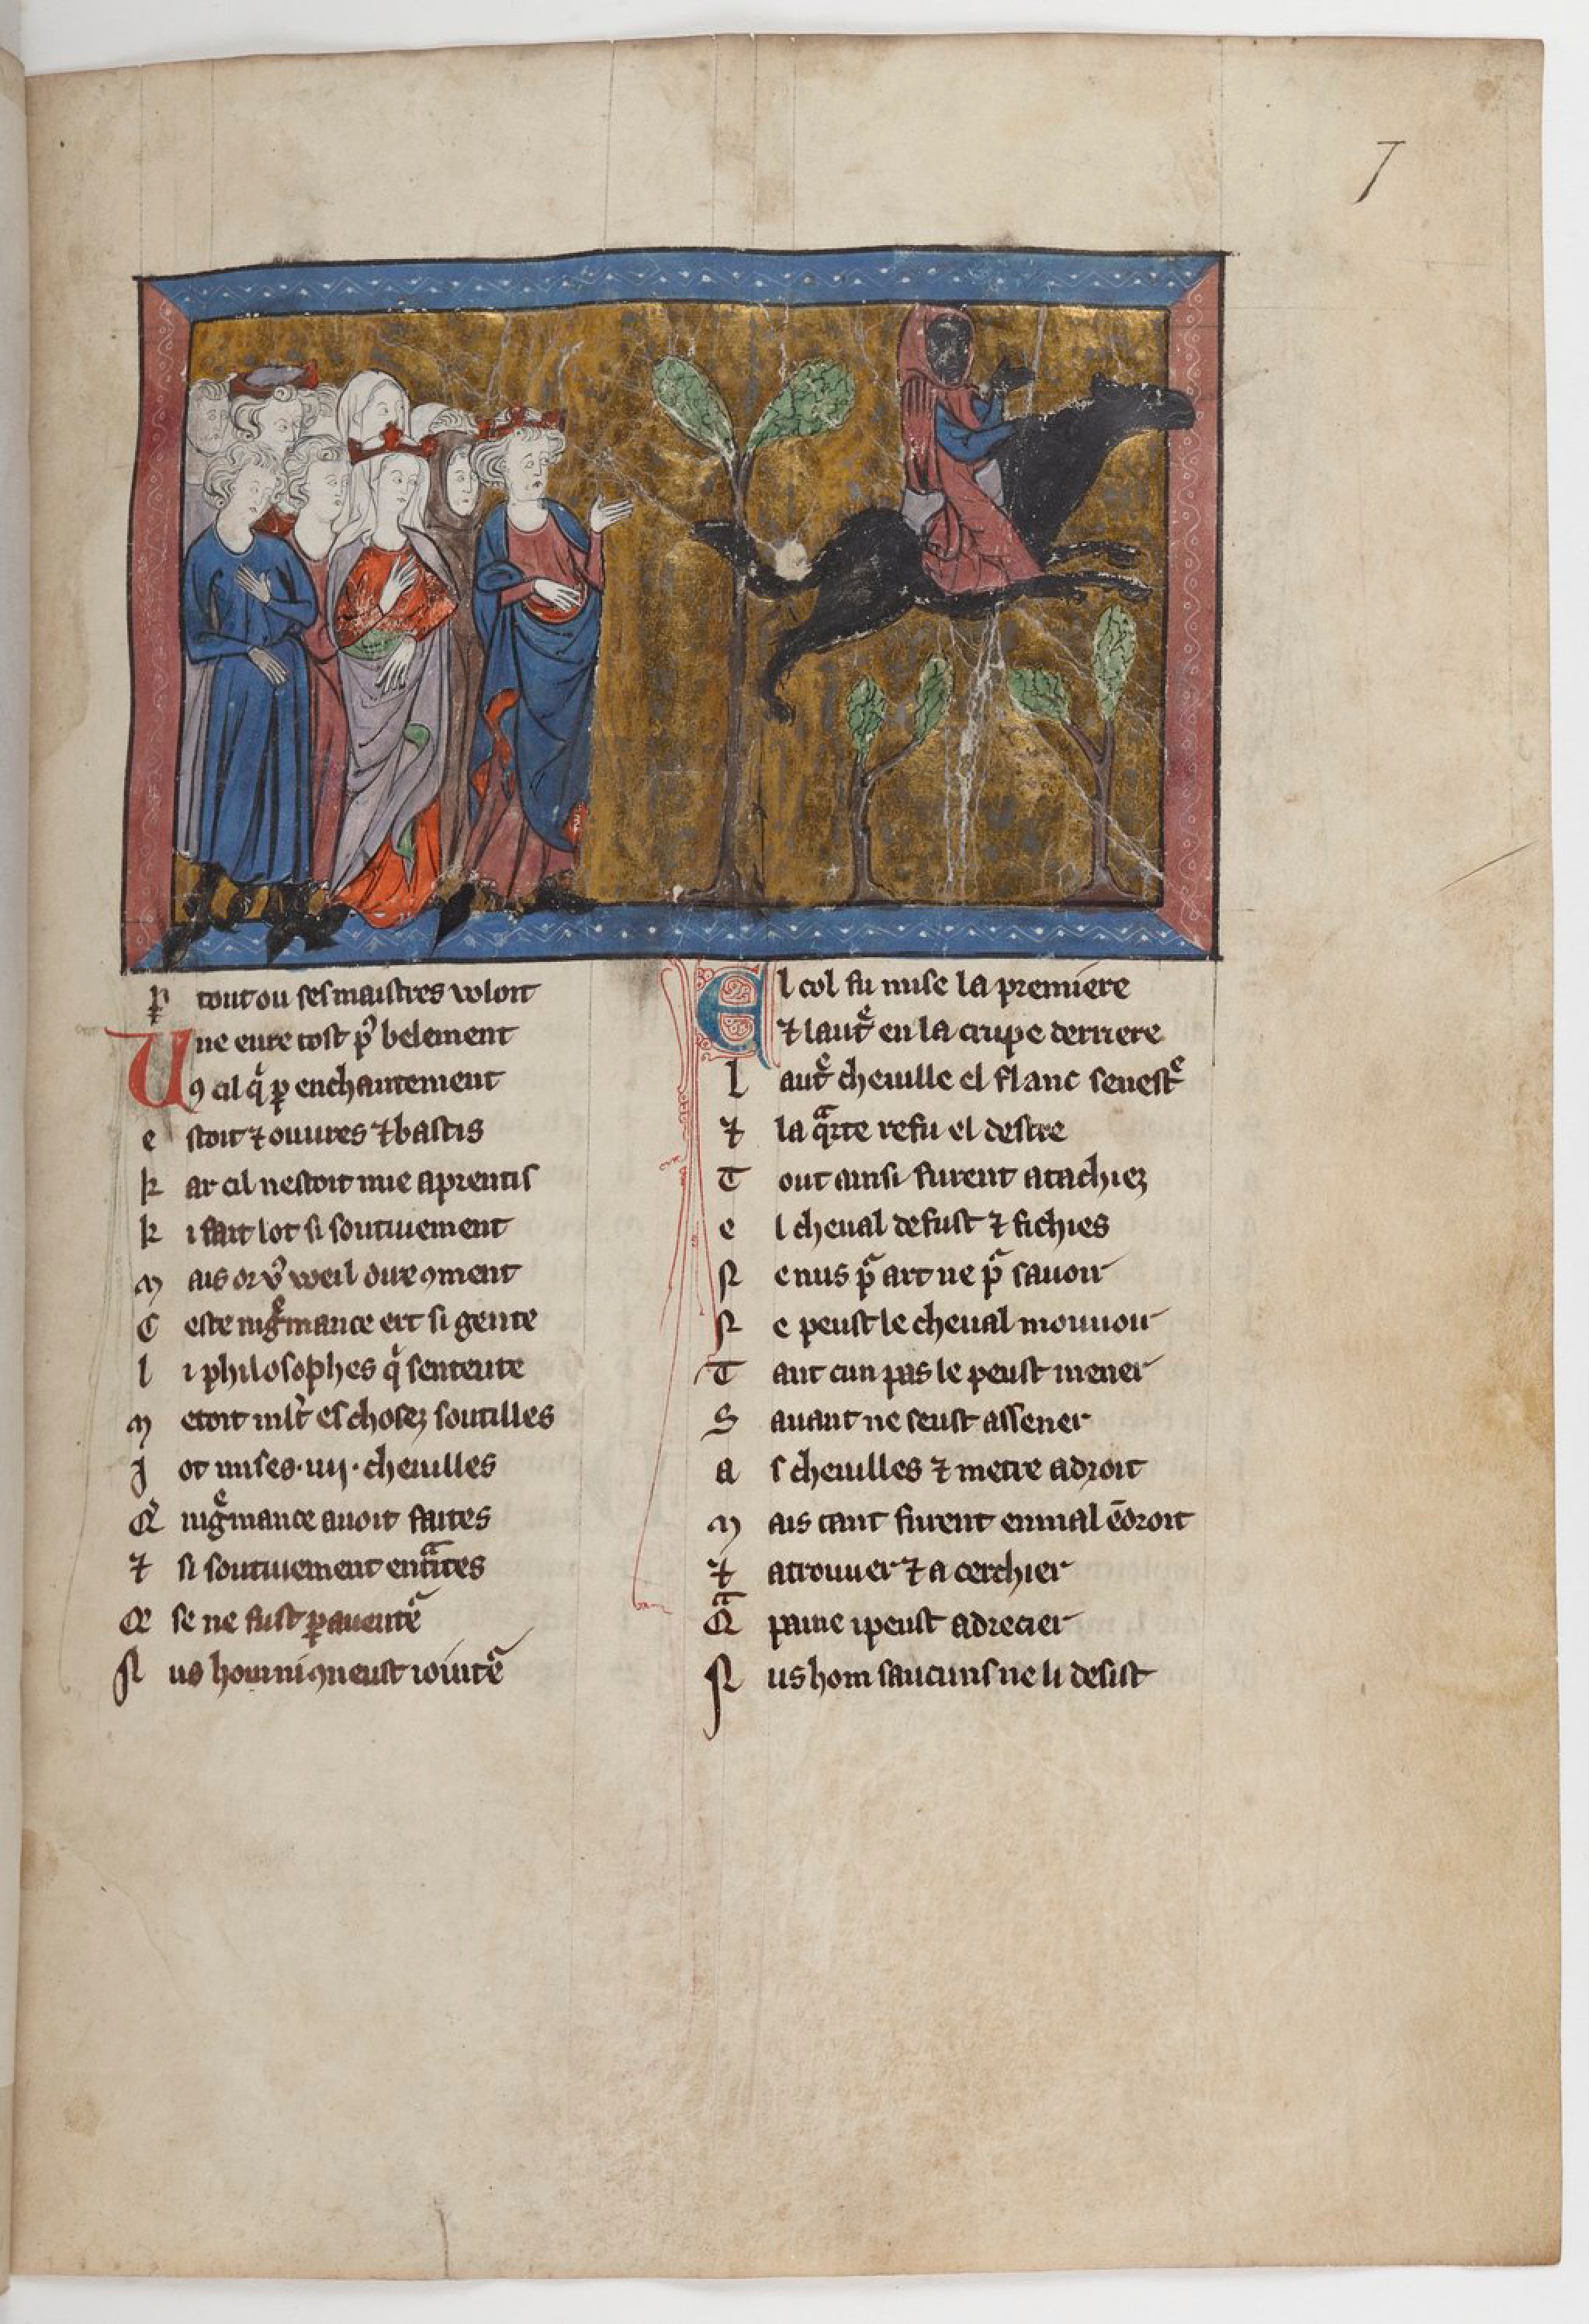 7
ꝑ tout ou ses maistres voloit
Vne eure tost pꝰ belement
Ꝯ cil q̇ ꝑ enchantement
estoit ⁊ ouures ⁊ bastis
kar cil nestoit mie aprentis
ki fait lot si soutiuement
mais or vꝰ weil dire ꝯment
Ceste nigᵉmance ert si gente
li philosophes q̇ sentente
metoit mlt̾ es chosez soutilles
J ot mises .iiij. cheuilles
Q̾ nigᵉmance auoit faites
⁊ si soutiuement entᵃites
Q̾ se ne fust ꝑ auentᵉ
Nus hom ni ꝯneust iointᵉ
El col fu mise la premiere
⁊ lautᵉ en la crupe derriere
Lautᵉ cheuille el flanc senestᵉ
⁊ la qᵃrte refu el destre
Tout ainsi furent atachiez
el cheual de fust ⁊ fichies
Nenus pᵃ art ne pᵃ sauoir
Ne peust le cheual mouuoir
Tant cun pas le peust mener
Sauant ne seust assener
as cheuilles ⁊ metre adroit
mais tant furent en mal ēdroit
⁊ a trouuer ⁊ a cerchier
Qᵃ paine i peust adrecier
Nus hom saucuns ne li desist